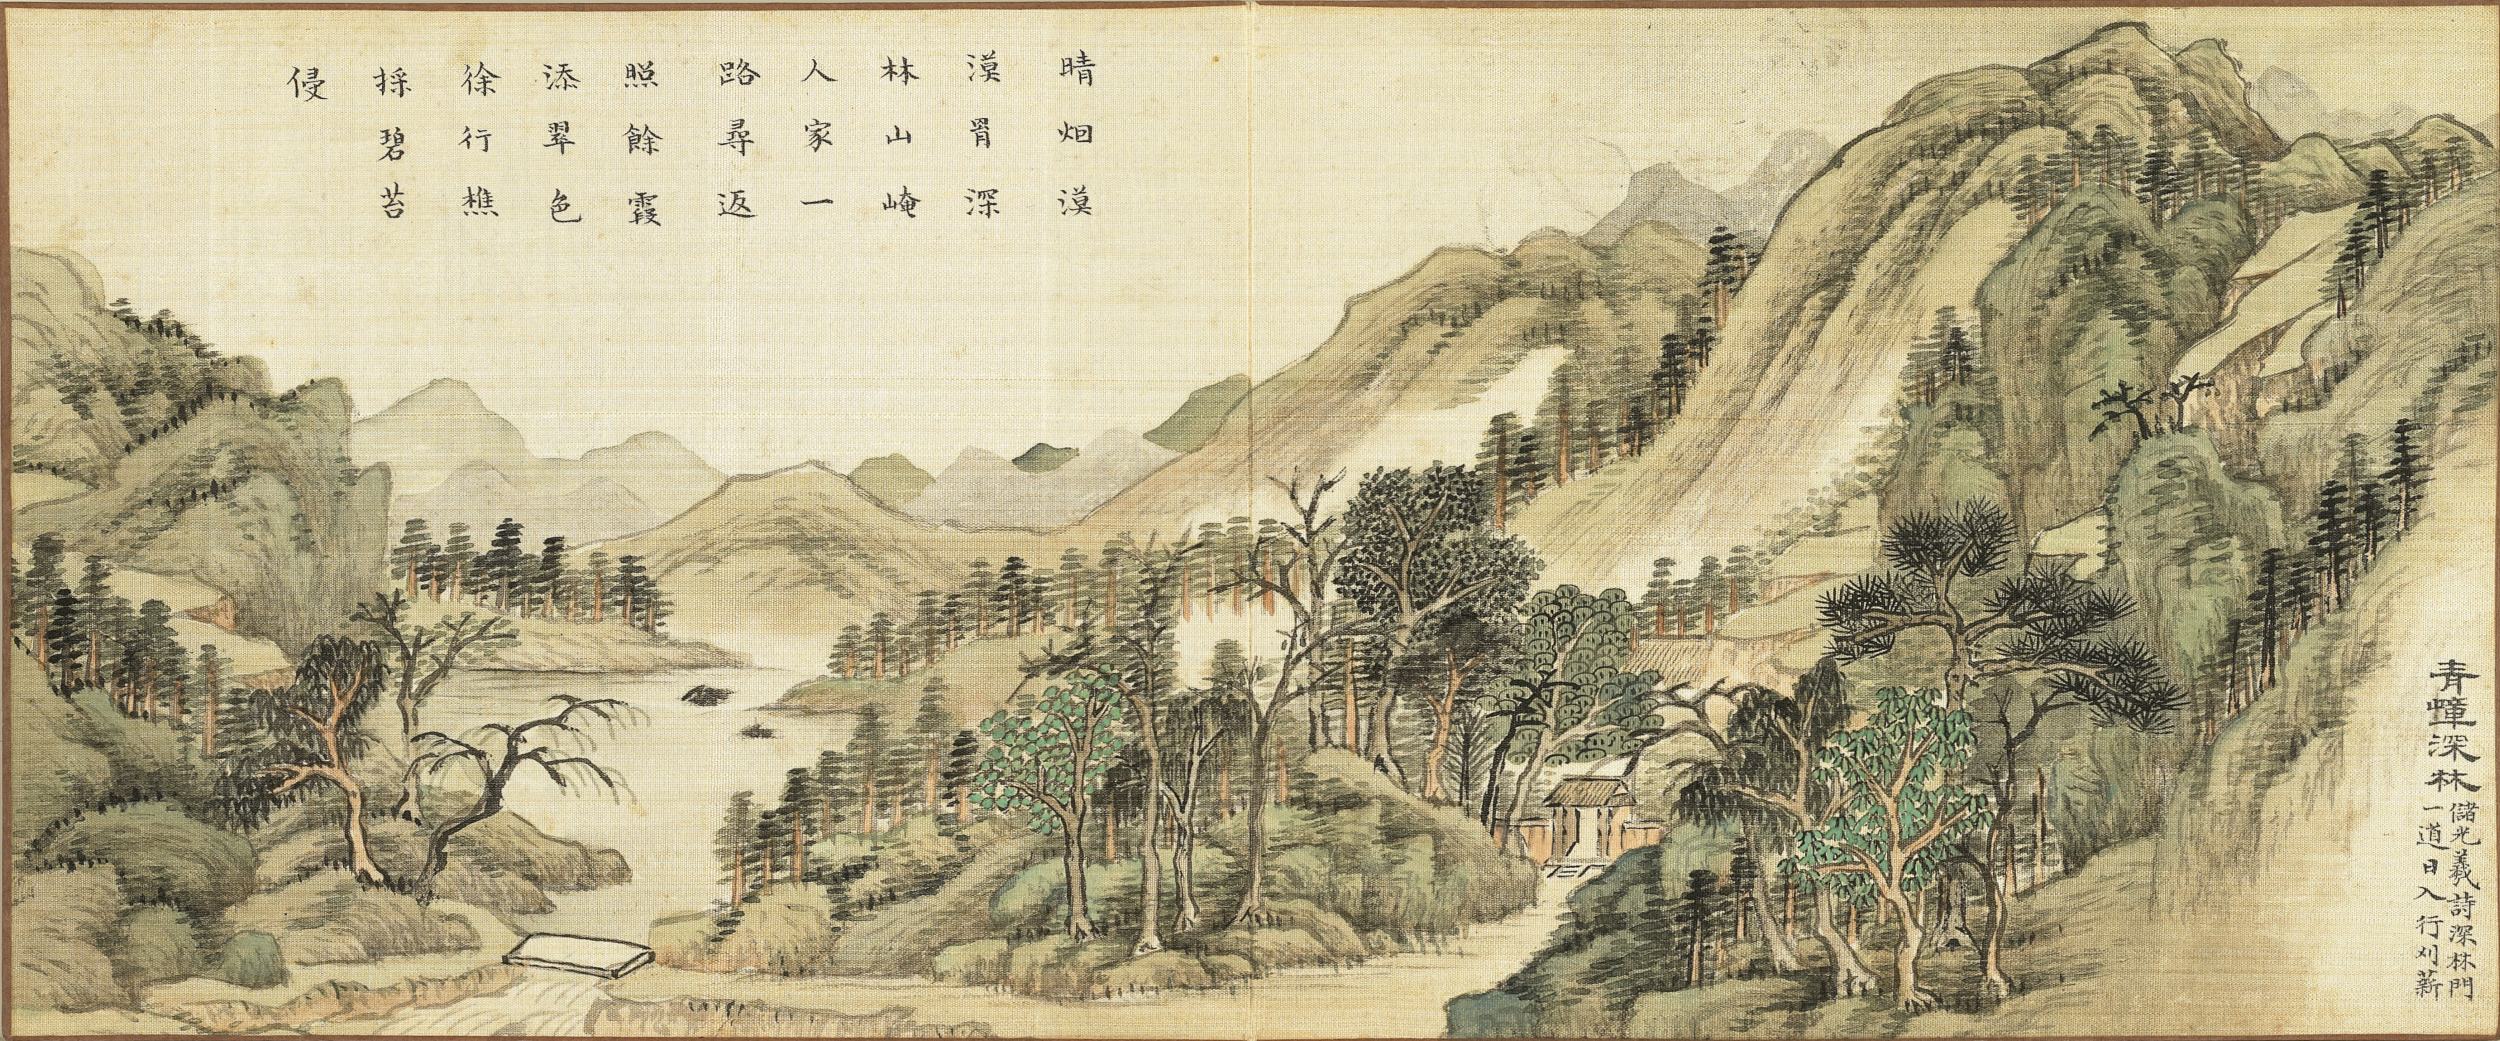 青嶂深林
儲光羲詩深林門
一道日入行刈薪
晴烟漠
漠罥深
林山崦
人家一
路尋返
照餘霞
添翠色
徐行樵
採碧苔
侵